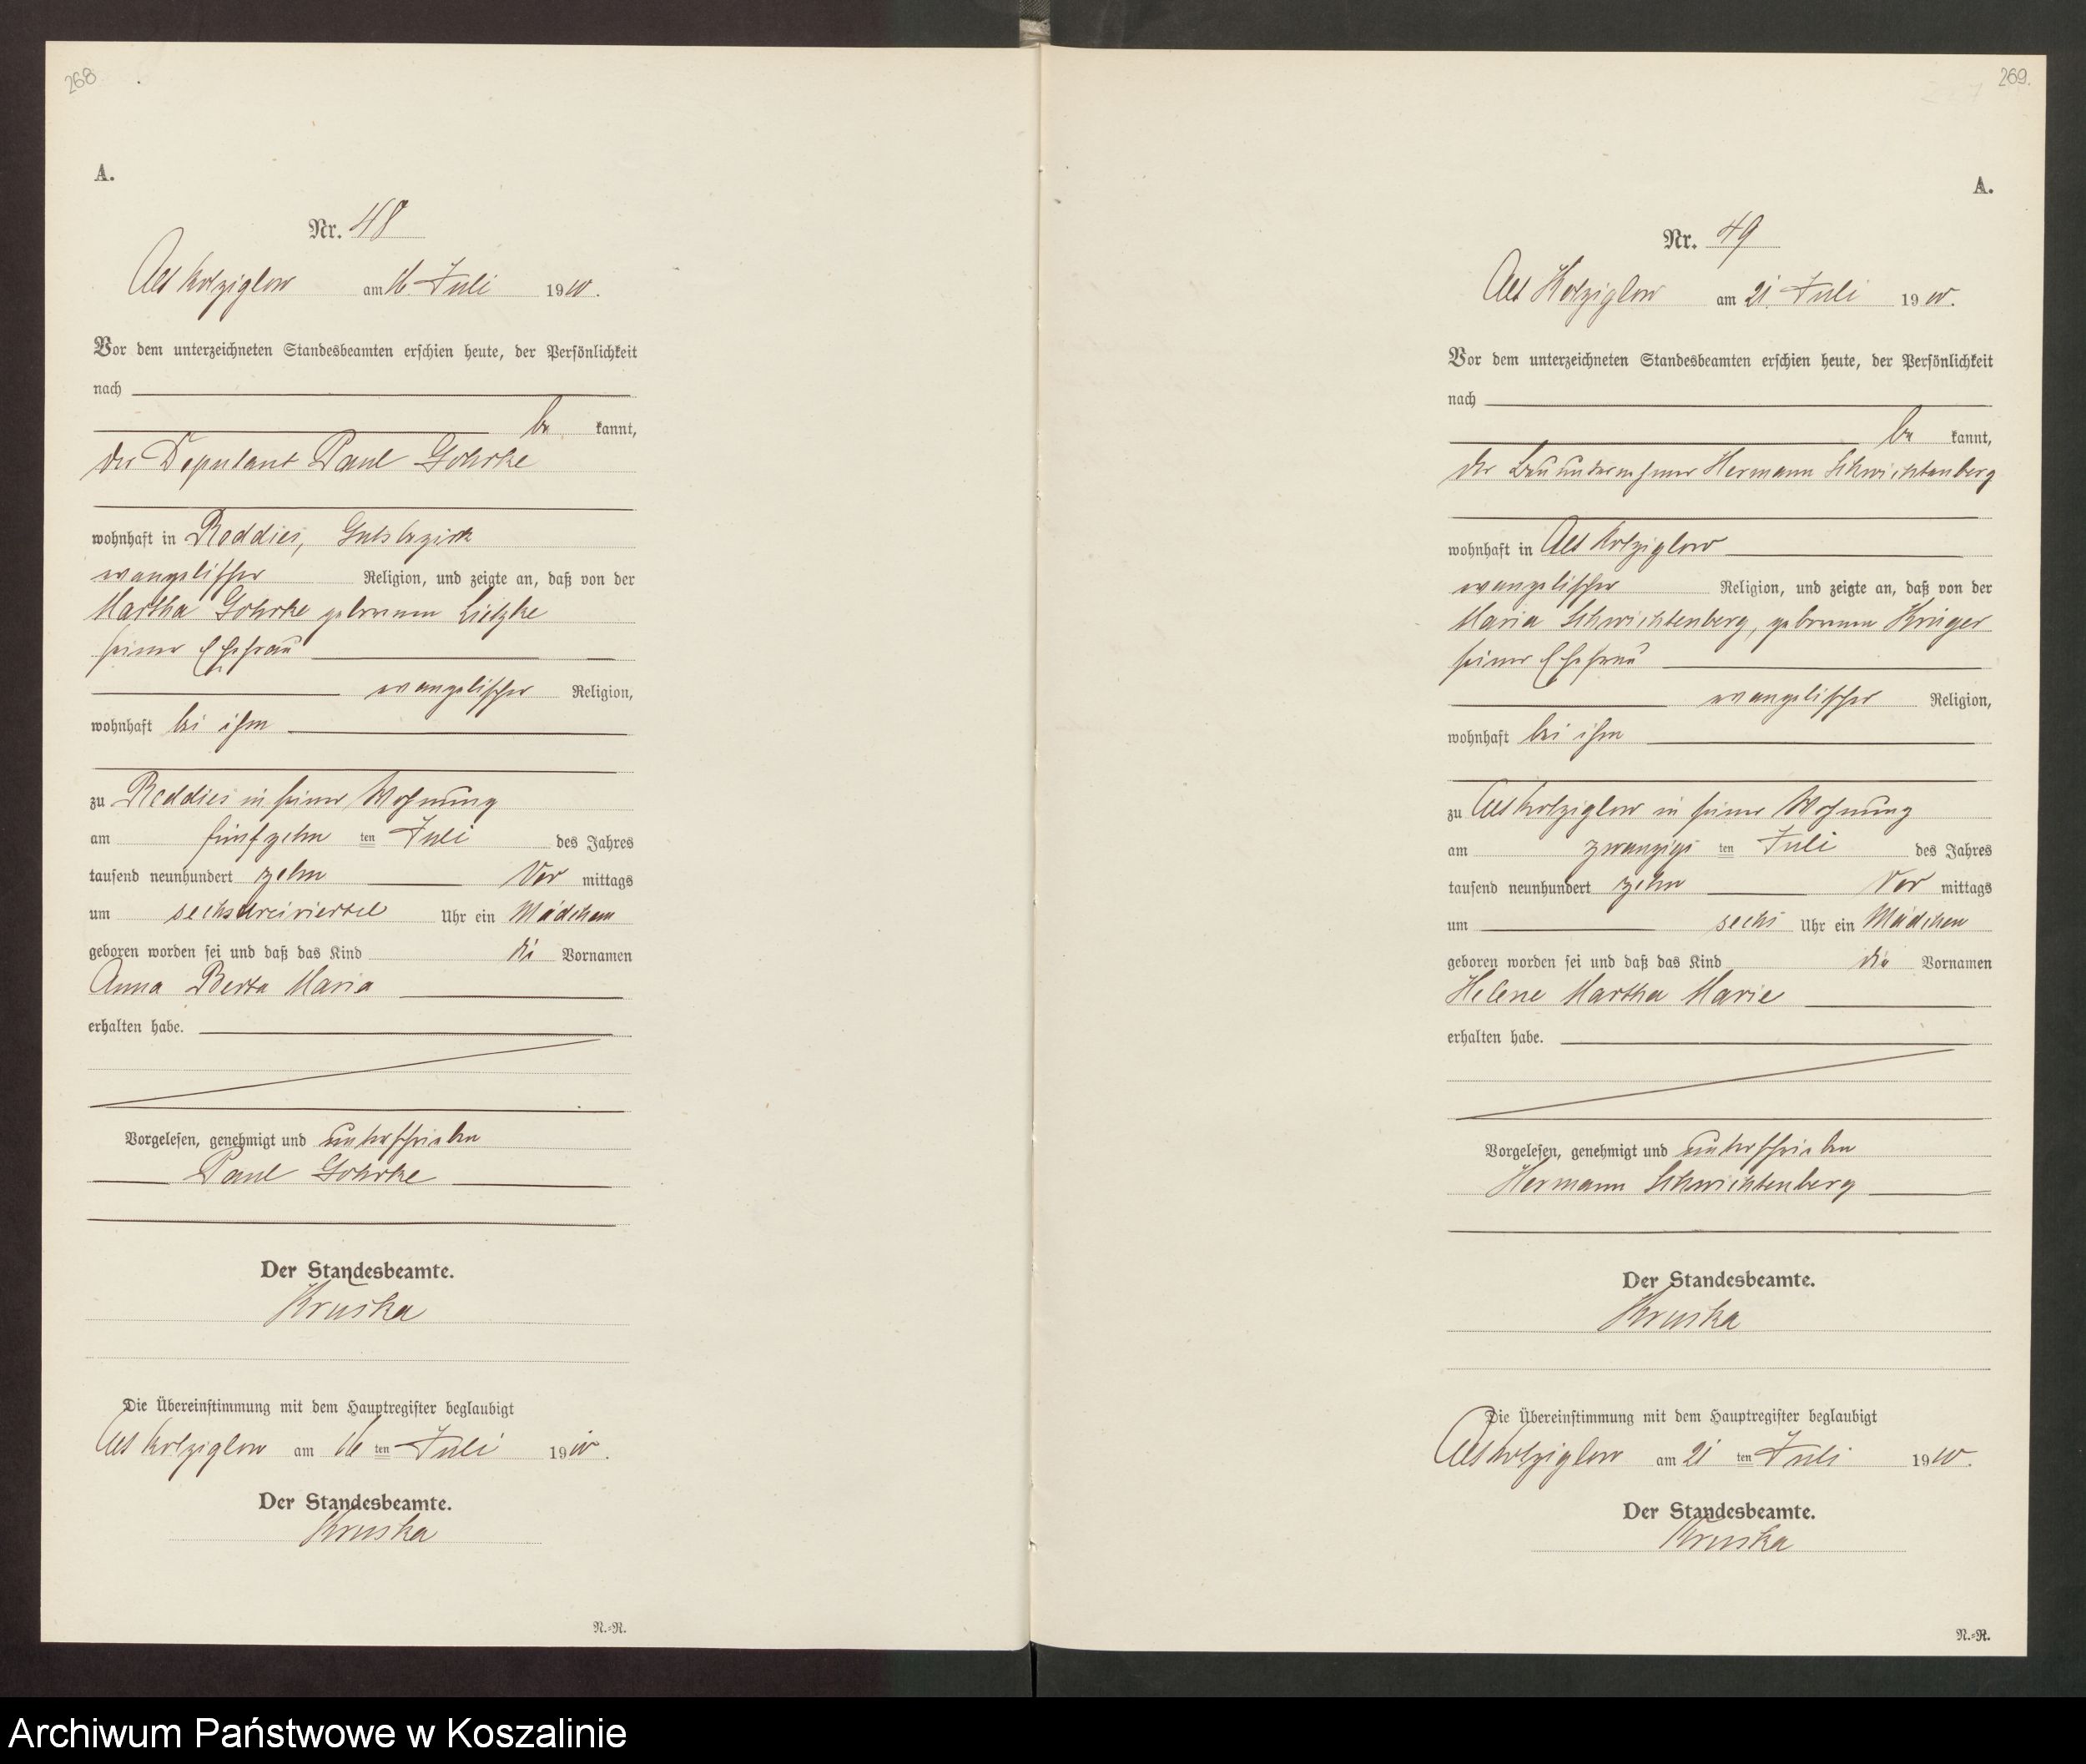 268
A.
Nr. 48
Alt Kolziglow am 16. Juli 1910.
Vor dem unterzeichneten Standesbeamten erschien heute, der Persönlichkeit
nach
be kannt,
der Deputant Paul Gohrke
wohnhaft in Reddies, Gutsbezirk
evangelischer Religion, und zeigte an, daß von der
Martha Gohrke geborenen Lietzke
seiner Ehefrau
evangelischer Religion,
wohnhaft bei ihm
zu Reddies in seiner Wohnung
am fünfzehn ten Juli des Jahres
tausend neunhundert zehn Vor mittags
um sechsdreiviertel Uhr ein Mädchen
geboren worden sei und daß das Kind die Vornamen
Anna Berta Maria
erhalten habe.
Vorgelesen, genehmigt und unterschrieben
Paul Gohrke
Der Standesbeamte.
Kruska
Die Übereinstimmung mit dem Hauptregister beglaubigt
Alt Kolziglow am 16 ten Juli 1910.
Der Standesbeamte.
Kruska
N.=R.
269.
A.
Nr. 49
Alt Kolziglow am 21. Juli 1910.
Vor dem unterzeichneten Standesbeamten erschien heute, der Persönlichkeit
nach
be kannt,
der Bauunternehmer Hermann Schwichtenberg
wohnhaft in Alt Kolziglow
evangelischer Religion, und zeigte an, daß von der
Maria Schwichtenberg, geborenen Krüger
seiner Ehefrau
evangelischer Religion,
wohnhaft bei ihm
zu Alt Kolziglow in seiner Wohnung
am zwanzigs ten Juli des Jahres
tausend neunhundert zehn Vor mittags
um sechs Uhr ein Mädchen
geboren worden sei und daß das Kind die Vornamen
Helene Martha Marie
erhalten habe.
Vorgelesen, genehmigt und unterschrieben
Hermann Schwichtenberg
Der Standesbeamte.
Kruska
Die Übereinstimmung mit dem Hauptregister beglaubigt
Alt Kolziglow am 21 ten Juli 1910.
Der Standesbeamte.
Kruska
N.=R.
Archiwum Państwowe w Koszalinie